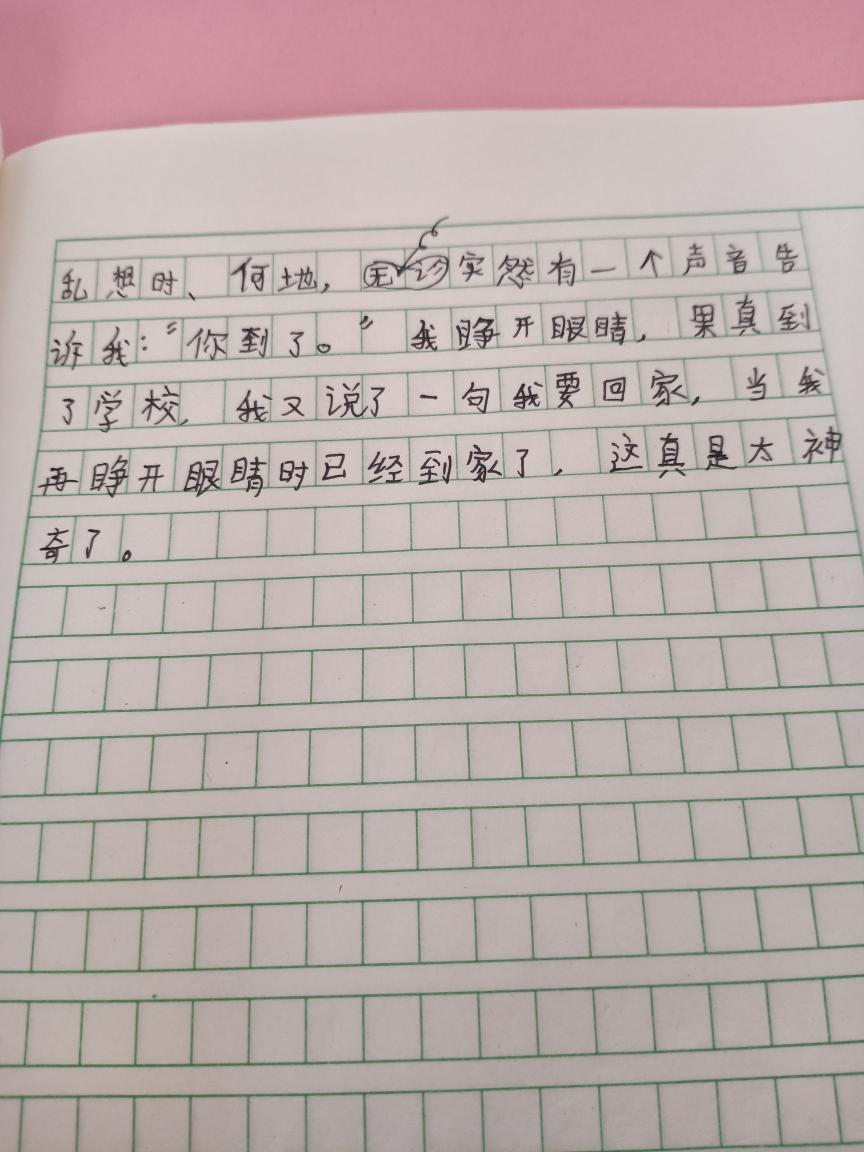 乱想时、何地，无论突然有一个声音告
诉我："你到了。"我睁开眼睛，果真到
了学校，我又说了一句我要回家，当我
再睁开眼睛时已经到家了，这真是太神
奇了。